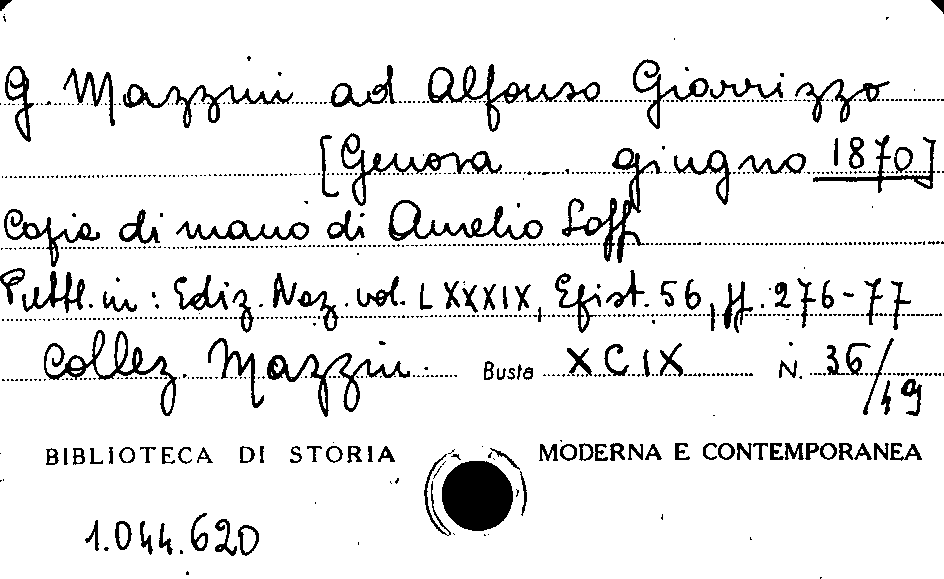 G. Mazzini ad Alfonso Giarrizzo
[Genova ... giugno 1870]
Copia di mano di Aurelio Saffi
Pubbl. in: Ediz. Naz. vol. LXXXIX, Epist. 56, pp. 276-77
Collez. Mazzini Busta XCIX N. 36/49
BIBLIOTECA DI STORIA MODERNA E CONTEMPORANEA
1.044.620